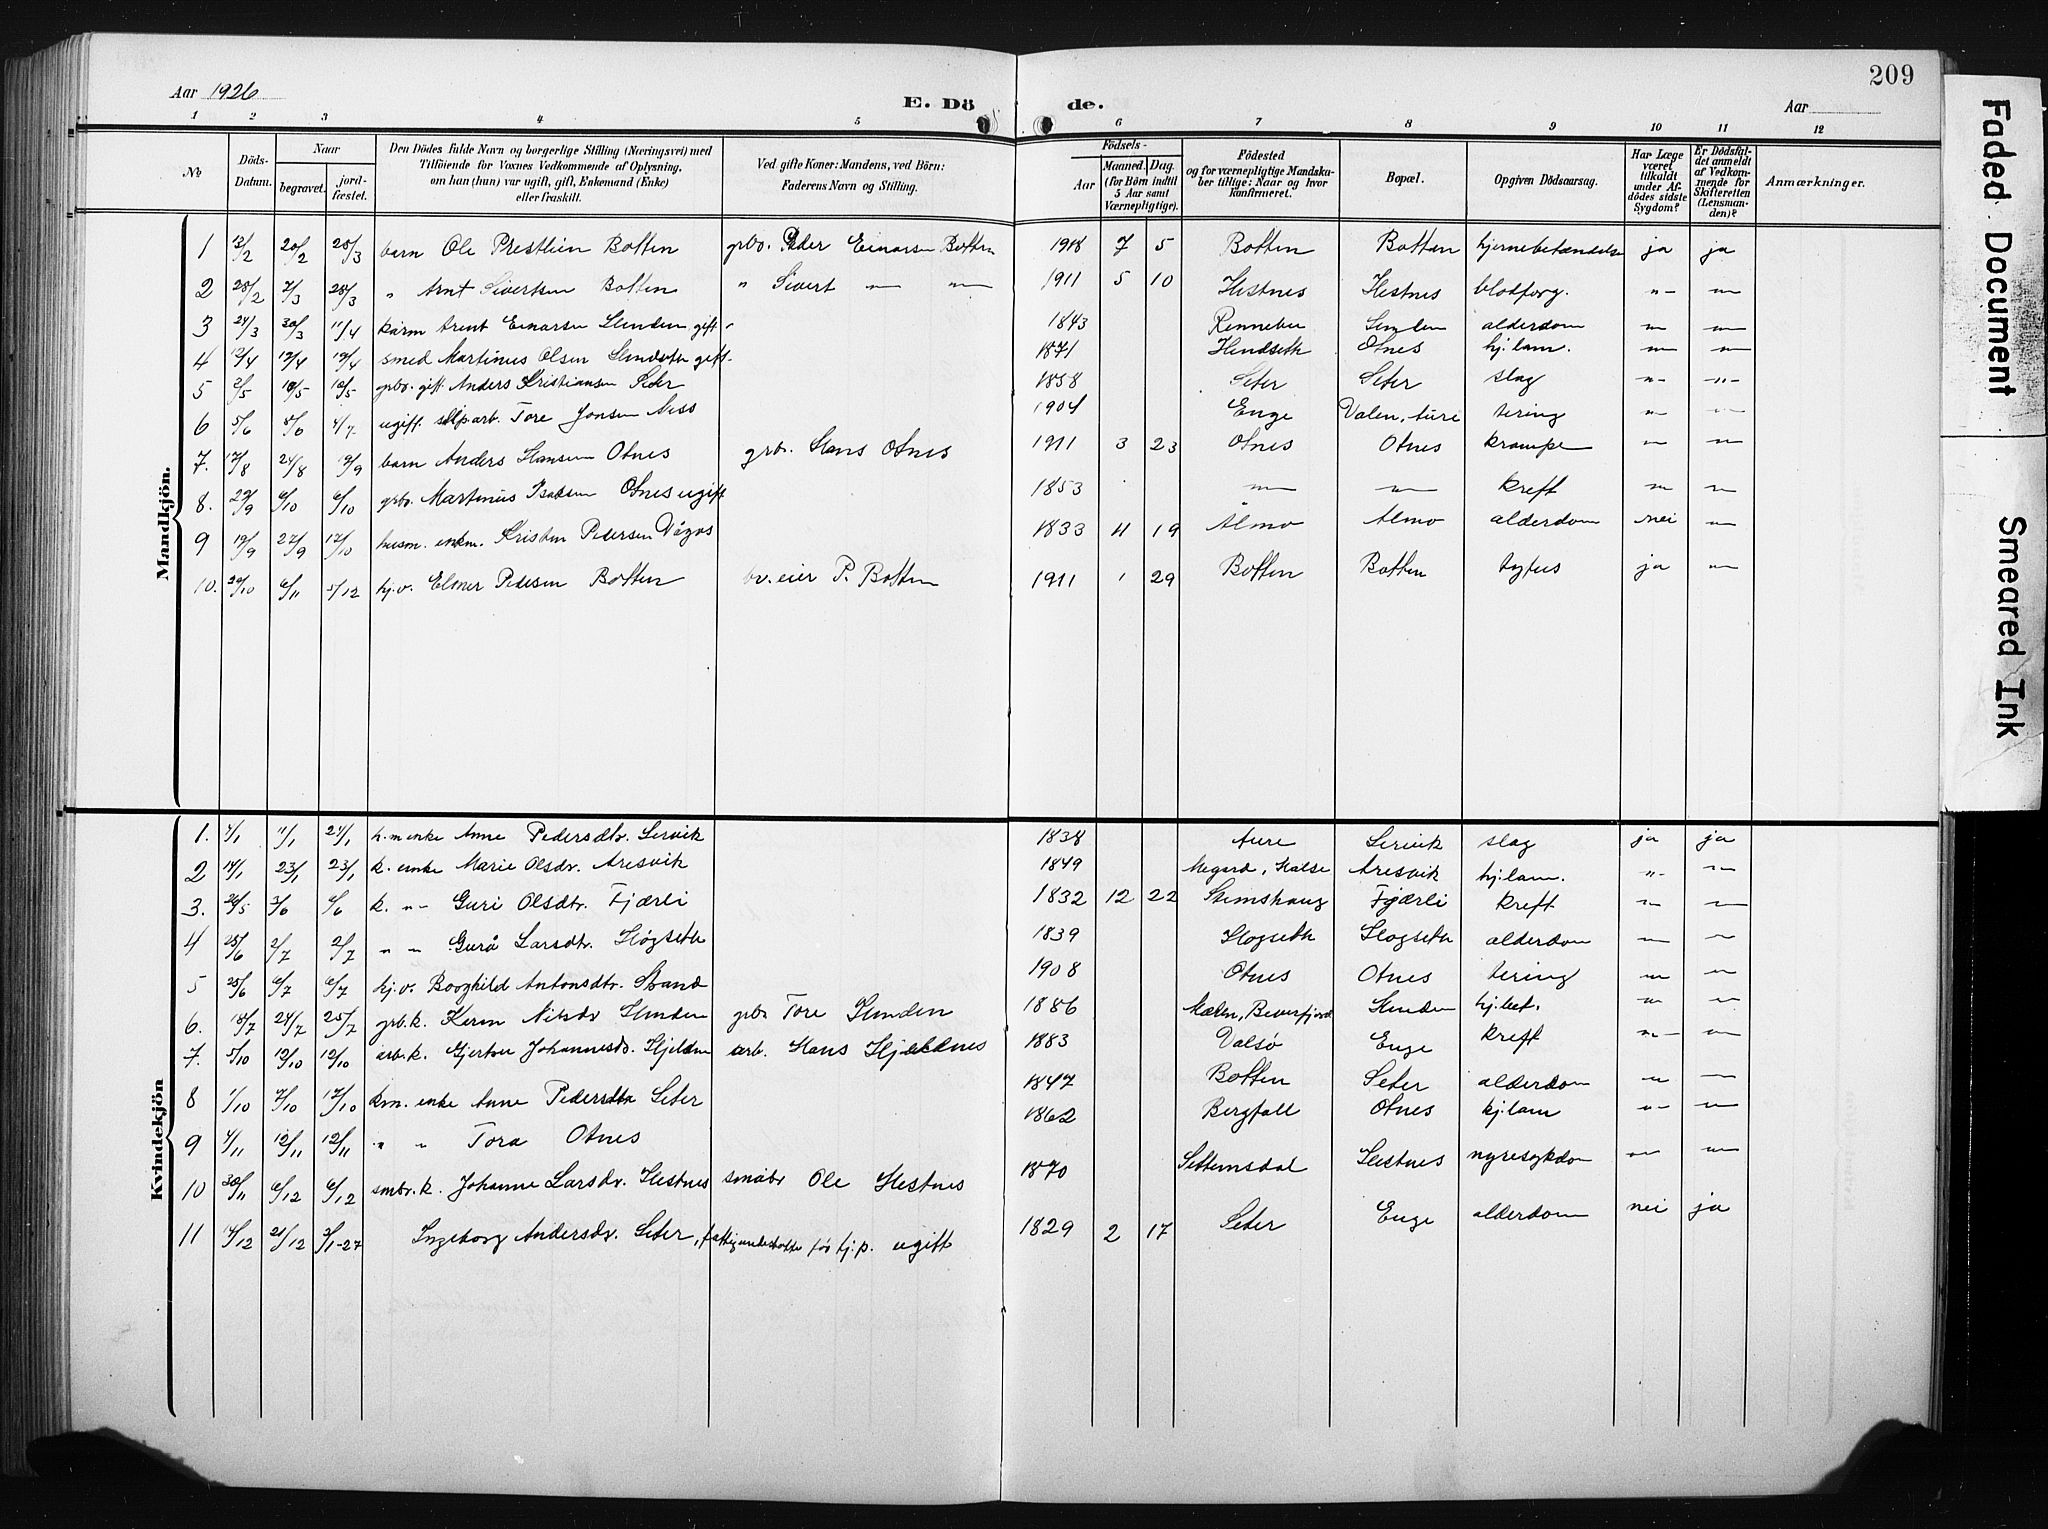 209
Aar 1926 E. Dö de. Aar
1 2 3 4 5 6 7 8 9 10 11 12
No Döds-Datum. Naar begravet. jord-fæstet. Den Dödes fulde Navn og borgerlige Stilling (Næringsvei) med Tilföiende for Voxnes Vedkommende af Oplysning, om han (hun) var ugift, gift, Enkemand (Enke) eller fraskilt. Ved gifte Koner: Mandens, ved Börn: Faderens Navn og Stilling. Födsels- Aar Maaned. Dag. (for Börn indtil 5 Aar samt Værnepligtige). Födested og for værnepligtige Mandskaber tillige: Naar og hvor konfirmeret. Bopæl. Opgiven Dödsaarsag. Har Læge været tilkaldt under Afdödes sidste Sygdom? Er Dödsfaldet anmeldt af Vedkommende for Skifteretten (Lensmanden)? Anmærkninger.
Mandkjön.
1 13/2 20/2 28/3 barn Ole Prestlien Botten grbr. Peder Einarsen Botten 1918 7 5 Botten Botten hjernebetændelse ja ja
2 28/2 7/3 28/3 " Arnt Sivertsen Botten " Sivert — — 1911 5 10 Hestnes Hestnes blodforg. " "
3 24/3 30/3 11/4 kårm Arent Einarsen gift 1843 Rennebu alderdom " "
4 12/4 19/4 smed Martinus Olsen gift 1871 Hendseth Otnes hj.lam. " "
5 2/5 10/5 10/5 grbr. gift Anders Kristiansen Seter 1858 Seter Seter slag " "
6 5/6 4/7 ugift arb. Tore Jonsen Ness 1904 Enge Valen, Aure tering " "
7. 17/8 24/8 19/9 barn Anders Hansen Otnes grbr. Hans Otnes 1911 3 23 Otnes Otnes krampe " "
8. 29/9 6/10 6/10 grbr. Martinus Isaksen Otnes ugift 1853 — — kreft " "
9 19/9 27/9 17/10 husm. enkm. Kristen Pedersen Vågos 1833 11 19 Almo Almo alderdom nei "
10. 29/10 6/11 5/12 hj.v. Elmer Pedersen Botten br.eier P. Botten 1911 1 29 Botten Botten tyfus ja "
Kvindekjön
1. 4/1 11/1 24/1 h.m enke Anne Pedersdtr. Lervik 1838 Aure Lervik slag ja ja
2 14/1 23/1 23/1 k. enke Marie Olsdr. Aresvik 1849 Megard, Halse Aresvik hj.lam. " "
3. 26/5 3/6 6/6 k. " Guri Olsdtr. Fjærli 1832 12 22 Stemshaug Fjærli kreft " "
4 25/6 2/7 2/7 " " Gurå Larsdtr. Høgseth 1839 Hogseth Hogseth alderdom " "
5 28/6 6/7 6/7 hj.v. Borghild Antonsdtr. Strand 1908 Otnes Otnes tering " "
6. 18/7 24/7 25/7 grb.k. Karen Nilsdr Hinden grbr Tore Hinden 1886 Mælen, Beverfjord Hinden hj.bet. " "
7. 5/10 12/10 12/10 arb.k. Gjertru Johannesdr. Hjeldnes arb. Hans Hjeldnes 1883 Valsø Enge kreft " "
8 1/10 7/10 17/10 km. enke Anne Pedersdtr Seter 1847 Botten Seter alderdom " "
9 4/11 12/11 12/11 " " Tora Otnes 1862 Bergfall Otnes hj.lam " "
10 30/11 6/12 6/12 smbr.k. Johanne Larsdr. Hestnes småbr Ole Hestnes 1870 Settemsdal Hestnes nyresykdom " "
11 14/12 21/12 3/1-27 Ingeborg Andersdr. Seter, fattigunderstøtte før hj.p. ugift 1829 2 17 Seter Enge alderdom nei ja
Faded Document
Smeared Ink